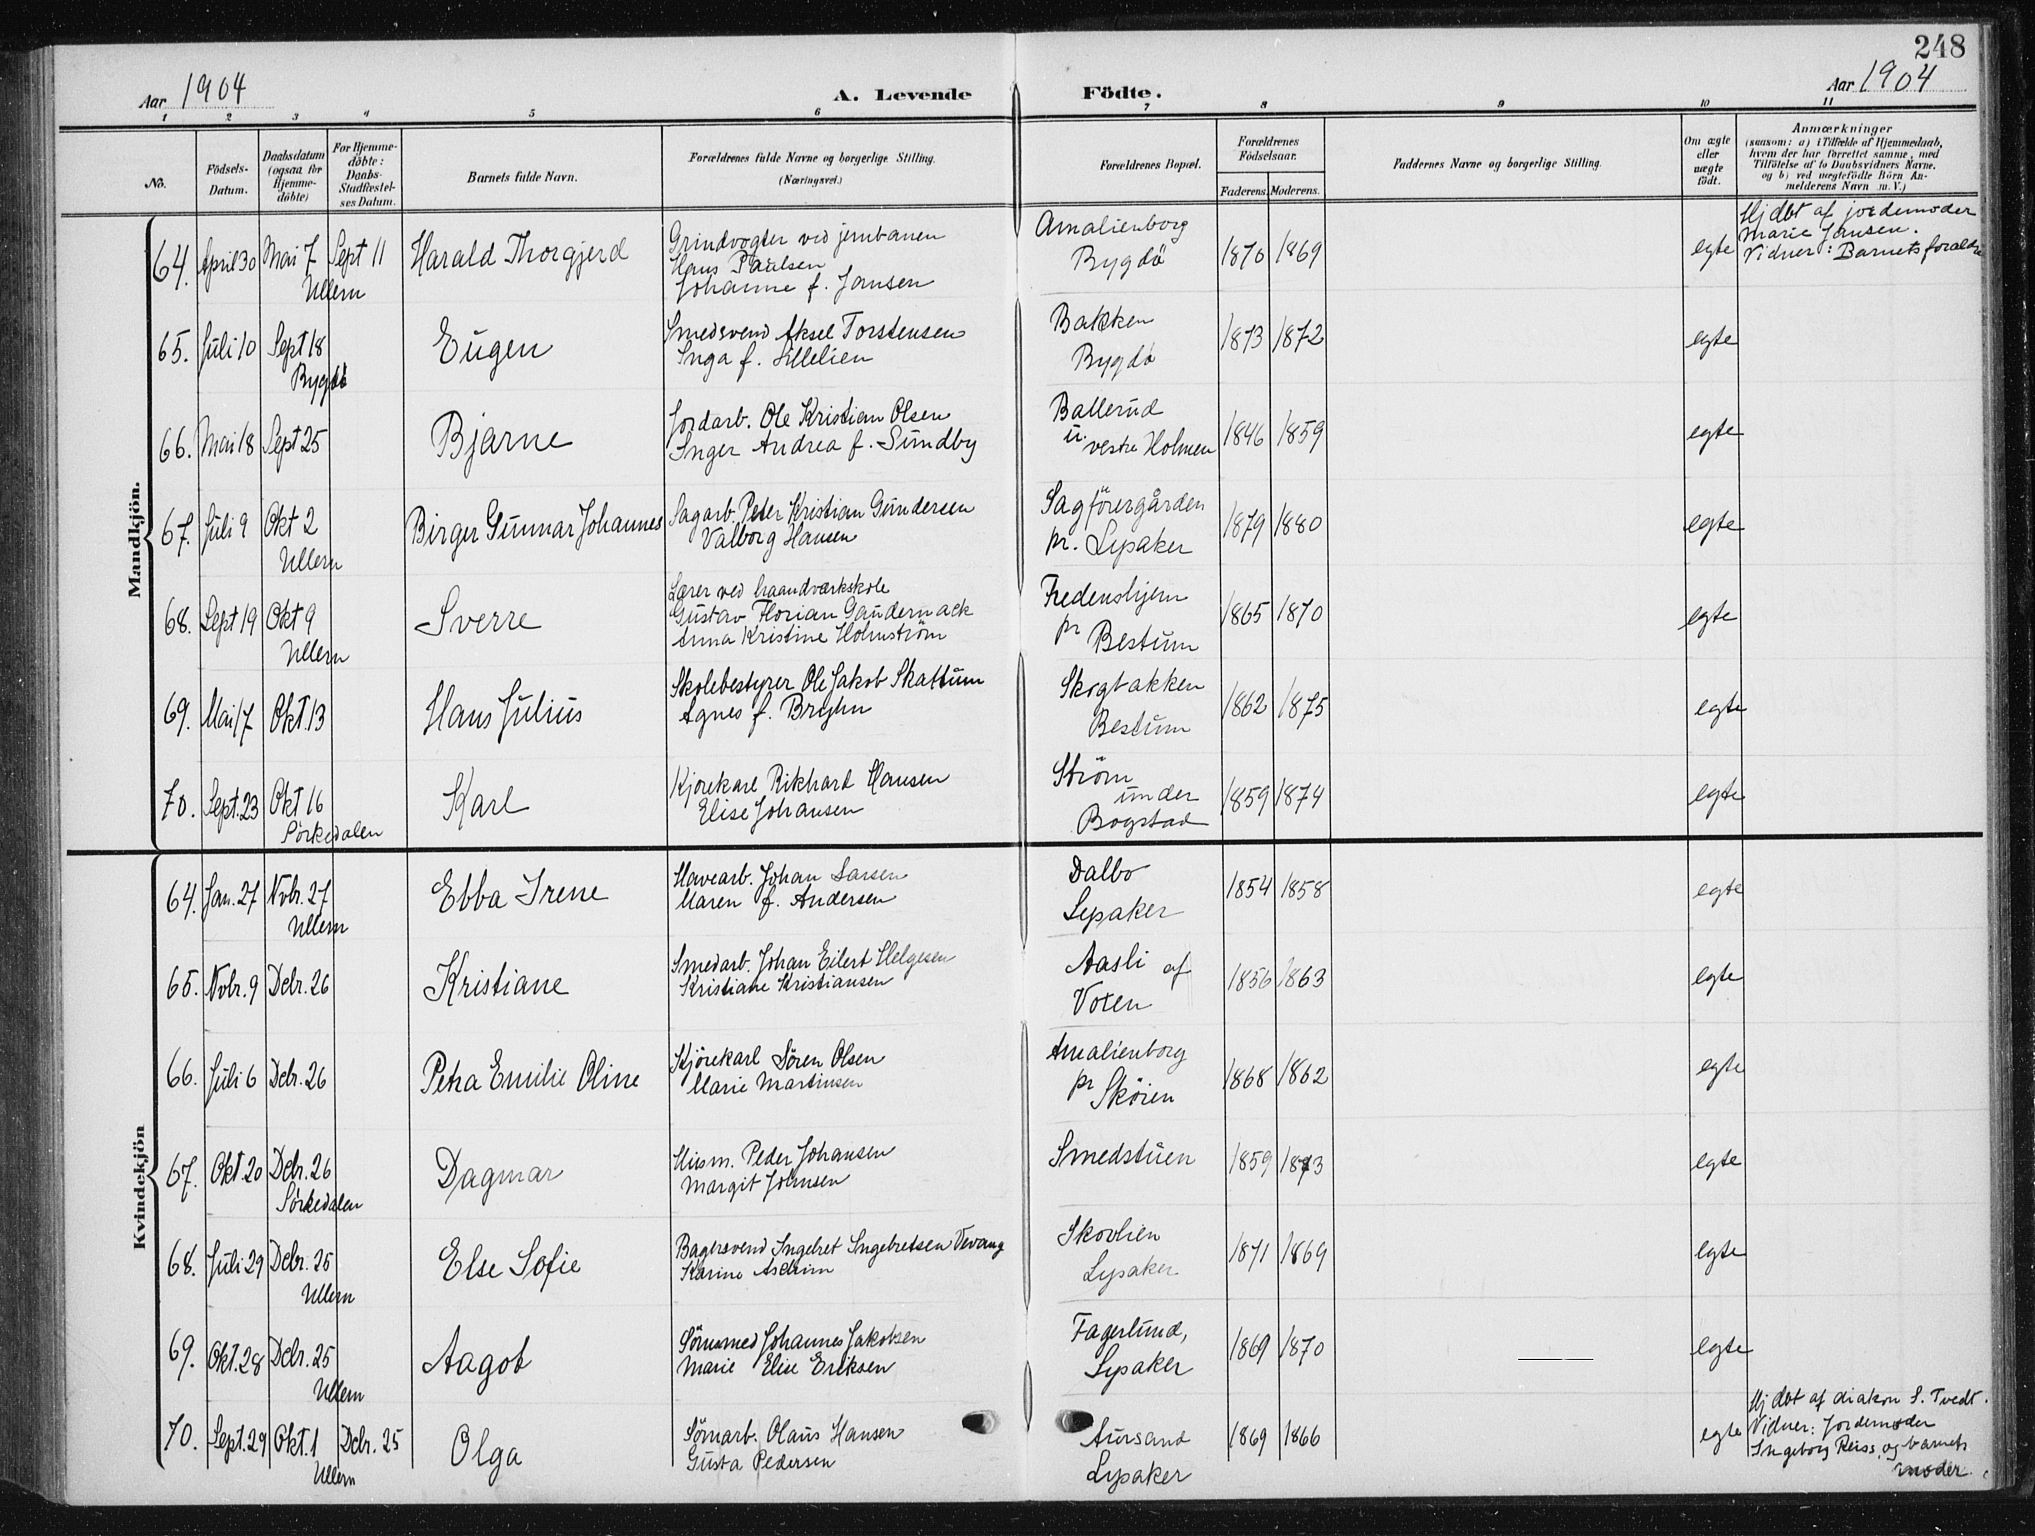 248
Aar 1904
A. Levende Födte.
Aar 1904
1 2 3 4 5 6 7 8 9 10 11
No.
Födsels-
Datum.
Daabsdatum
(ogsaa for
Hjemme-
döbte)
For Hjemme-
döbte:
Daabs-
Stadfæstel-
ses Datum.
Barnets fulde Navn.
Forældrenes fulde Navne og borgerlige Stilling.
(Næringsvei.)
Forældrenes Bopæl.
Forældrenes
Födselsaar.
Faderens. Moderens.
Faddernes Navne og borgerlige Stilling.
Om ægte
eller
uægte
födt.
Anmærkninger
(saasom: a) i Tilfælde af Hjemmedaab,
hvem der har forrettet samme, med
Tilföielse af to Daabsvidners Navne,
og b) ved uægtefödte Börn An-
melderens Navn m. V.)
Mandkjön.
64. April 30 Mai 7 Sept 11 Harald Thorgjerd
Ullern
Grindvogter ved jernbanen
Hans Paulsen
Johanne f. Jansen
Amalienborg
Bygdö
1870 1869 egte
Hj dbt af jordemoder
Marie Jansen.
Vidner: Barnets forældre
65. Juli 10 Sept 18 Eugen
Bygdö
Smedsvend Aksel Torstensen
Inga f. Lillelien
Bakken
Bygdö
1873 1872 egte
66. Mai 18 Sept 25 Bjarne
Jordarb. Ole Kristian Olsen
Inger Andrea f. Sundby
Ballerud
u. vestre Holmen
1846 1859 egte
67. Juli 9 Okt 2 Birger Gunnar Johannes
Ullern
Sagarb. Peter Kristian Gundersen
Valborg Hansen
Sagförergården
pr. Lysaker
1879 1880 egte
68. Sept 19 Okt 9 Sverre
Ullern
Lærer ved haandværkskole
Gustav Florian Gaudernack
Anna Kristine Holmström
Fredenshjem
pr Bestum
1865 1870 egte
69. Mai 17 Okt. 13 Hans Julius
Skolebestyrer Ole Jakob Skattum
Agnes f. Bryhn
Skogbakken
Bestum
1862 1875 egte
70. Sept. 23 Okt 16 Karl
Sörkedalen
Kjörekarl Rikhard Hansen
Elise Johansen
Ström
under
Bogstad
1859 1874 egte
Kvindekjön
64. Jan. 27 Nvbr. 27 Ebba Irene
Ullern
Havearb. Johan Larsen
Maren f. Andersen
Dalbo
Lysaker
1854 1858 egte
65. Nvbr. 9 Dcbr. 26 Kristiane
Smedarb. Johan Eilert Helgesen
Kristiane Kristiansen
Aasli af
Voxen
1856 1863 egte
66. Juli 6 Dcbr. 26 Petra Emilie Oline
Kjörekarl Sören Olsen
Marie Martinsen
Amalienborg
pr Sköien
1868 1862 egte
67. Okt. 20 Dcbr. 26 Dagmar
Sörkedalen
Husm. Peder Johansen
Margit Johnsen
Smedstuen
1859 1873 egte
68. Juli 29 Dcbr. 25 Else Sofie
Ullern
Bagersvend Ingebret Ingebretsen Vevang
Karine Ascheim
Skovlien
Lysaker
1871 1869 egte
69. Okt. 28 Dcbr. 25 Aagot
Ullern
Sömsmed Johannes Jakobsen
Marie Elise Eriksen
Fagerlund,
Lysaker
1869 1870 egte
70. Sept. 29 Okt. 1 Dcbr. 25 Olga
Ullern
Sömarb. Olaus Hansen
Gusta Pedersen
Aursand
Lysaker
1869 1866 egte
Hj dbt af diakon S. Tvedt.
Vidner: Jordemoder
Ingeborg Reiss, og barnets
moder.